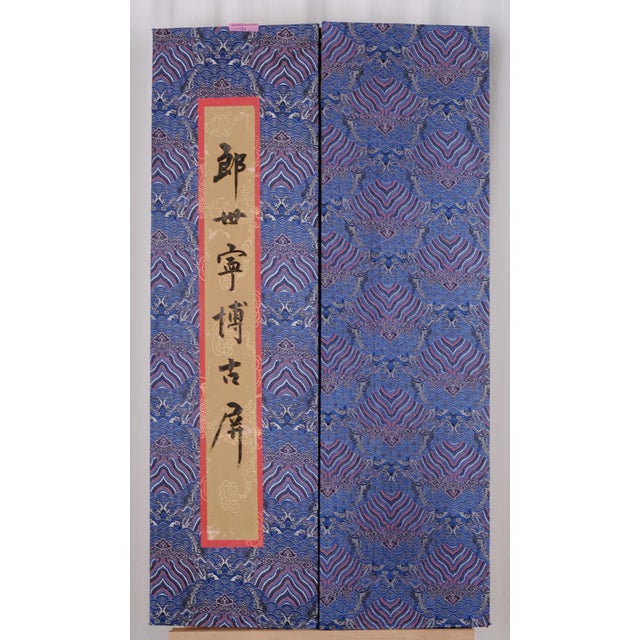 郎世寧博古屏